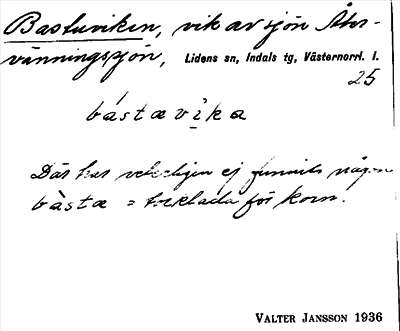 Bastuviken, vik av sjön Åter-
vänningssjön, Lidens sn, Indals tg, Västernorrl. l.
25
bástavìka
Där har veterligen ej funnits någon
bàsta = torklada för korn.
VALTER JANSSON 1936